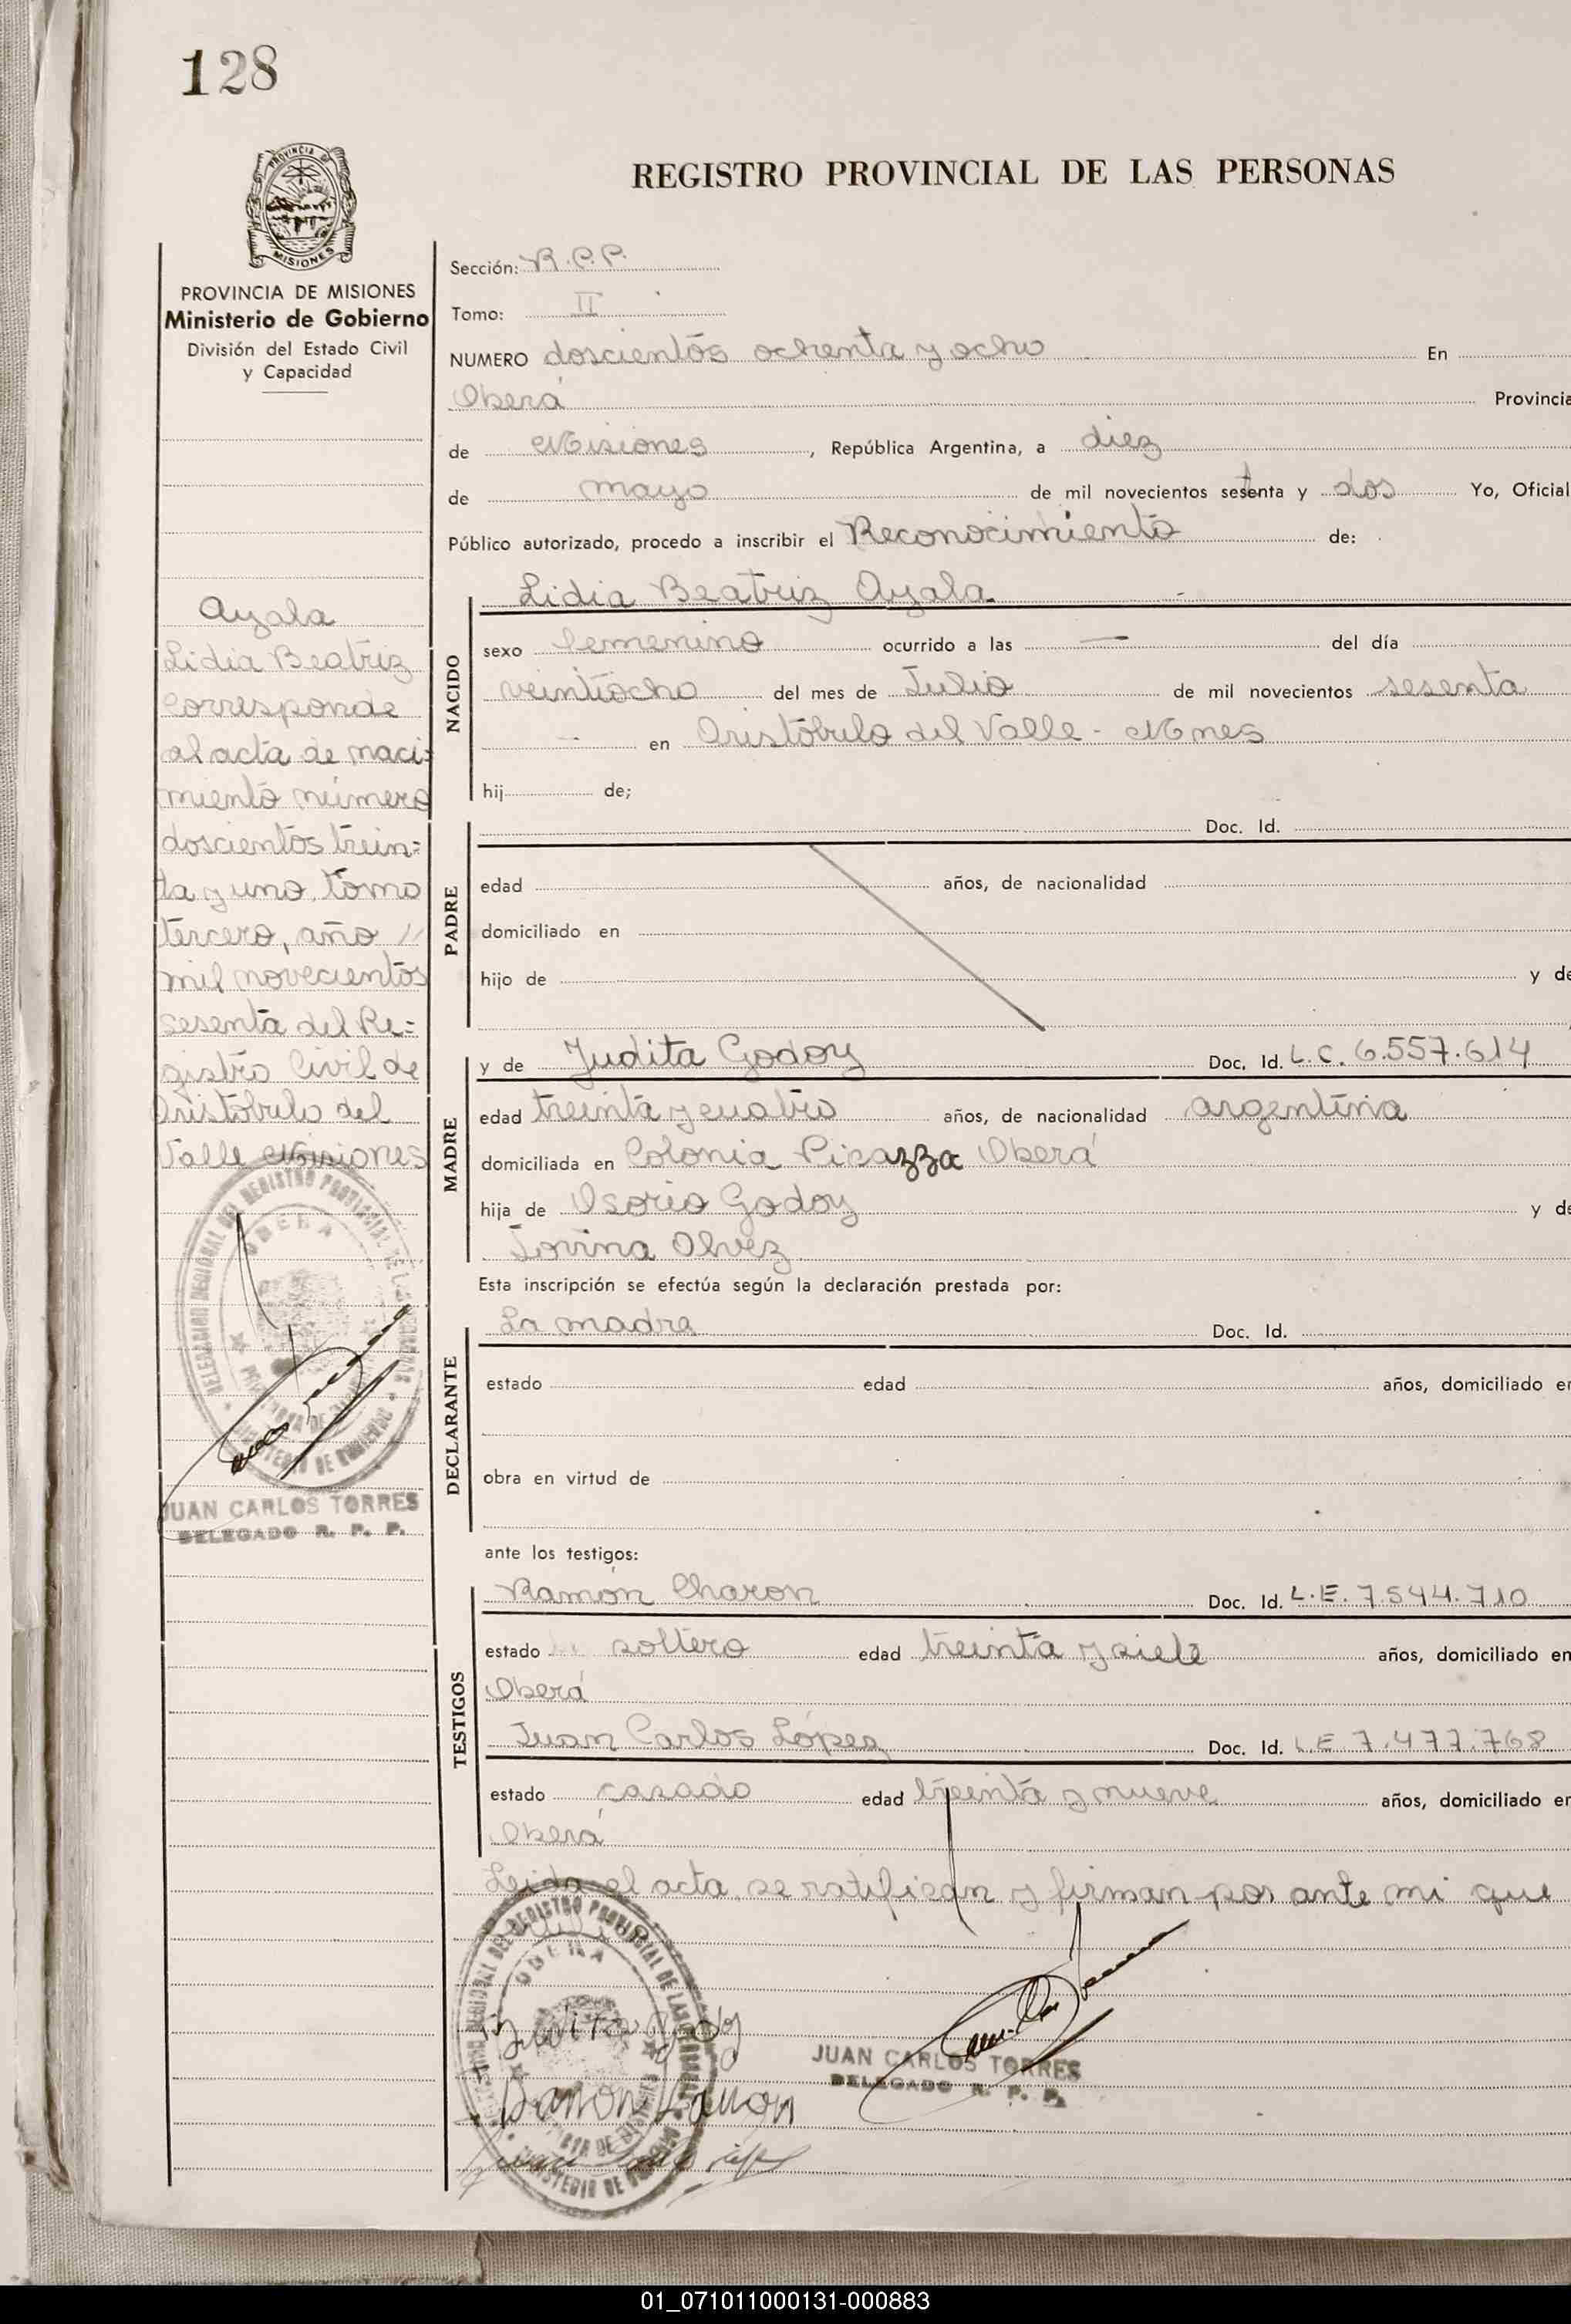 128
PROVINCIA DE
MISIONES
REGISTRO PROVINCIAL DE LAS PERSONAS
PROVINCIA DE MISIONES
Ministerio de Gobierno
División del Estado Civil
y Capacidad
Ayala
Lidia Beatriz
corresponde
al acta de naci-
miento número
doscientos trein=
ta y uno, tomo
tercero, año //
mil novecientos
sesenta del Re=
gistro Civil de
Aristóbulo del
Valle Misiones
JUAN CARLOS TORRES
DELEGADO R. P. P.
Sección: R.P.P.
Tomo: II
NUMERO doscientos ochenta y ocho En
Oberá Provincia
de Misiones, República Argentina, a diez
de mayo de mil novecientos setenta y dos Yo, Oficial
Público autorizado, procedo a inscribir el Reconocimiento de:
NACIDO
Lidia Beatriz Ayala.
sexo femenino ocurrido a las — del día
veintiocho del mes de Julio de mil novecientos sesenta
— en Aristóbulo del Valle - Mnes
hij de;
PADRE
Doc. Id.
edad años, de nacionalidad
domiciliado en
hijo de y de
MADRE
y de Judita Godoy Doc. Id. L.C. 6.557.614
edad treinta y cuatro años, de nacionalidad argentina
domiciliada en Colonia Picazza Oberá
hija de Osorio Godoy y de
Jovina Olvez
Esta inscripción se efectúa según la declaración prestada por:
DECLARANTE
La madre Doc. Id.
estado edad años, domiciliado en
obra en virtud de
ante los testigos:
TESTIGOS
Ramón Charon Doc. Id. L.E. 7.544.710
estado soltero edad treinta y siete años, domiciliado en
Oberá
Juan Carlos López Doc. Id. L.E 7.477.768
estado casado edad treinta y nueve años, domiciliado en
Oberá
Leida el acta se ratifican y firman por ante mi que
OBERA
JUAN CARLOS TORRES
DELEGADO R. P. P.
01_071011000131-000883